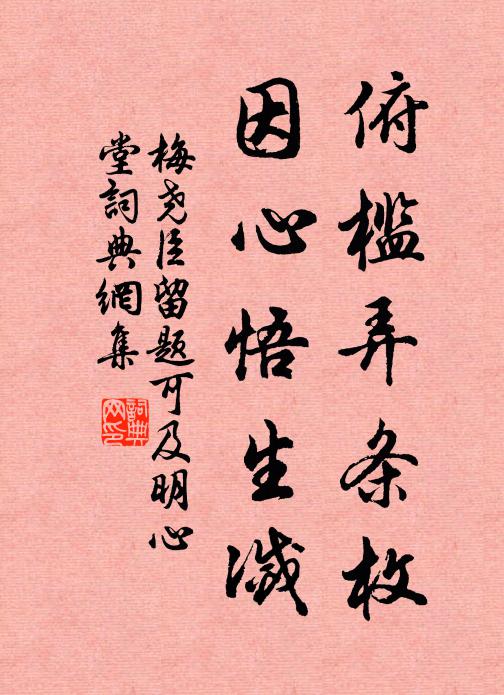 俯槛弄条枚
因心悟生滅
梅尧臣留题可及明心
堂詞典網集
詞典
网印